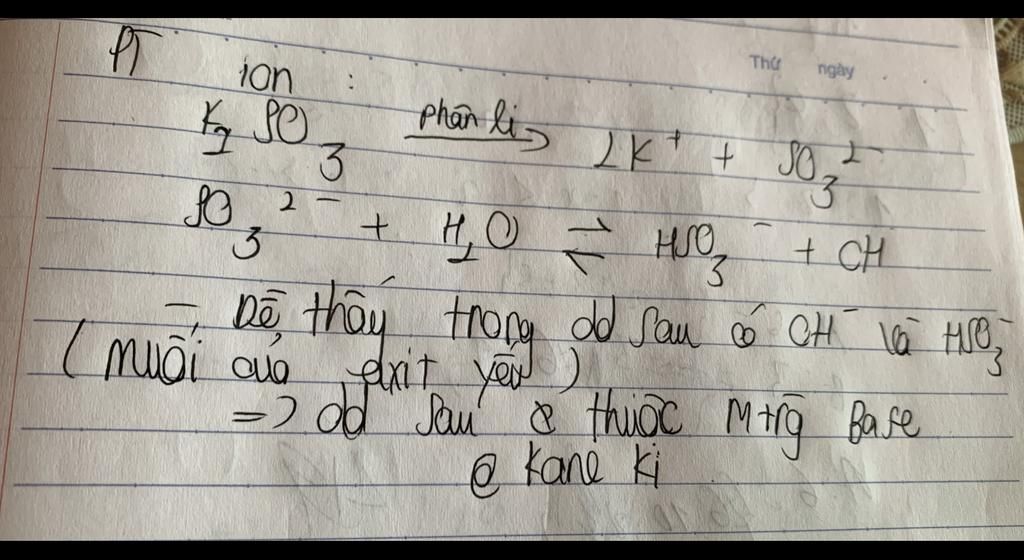 Thứ ngày
PT ion :
K2SO3 phân li → 2K+ + SO3 2-
SO3 2- + H2O ⇌ HSO3 - + OH
- Dễ thấy trong dd sau có OH- và HSO3-
(muối của axit yếu)
=> dd sau thuộc Mtrg Base
@ Kane Ki